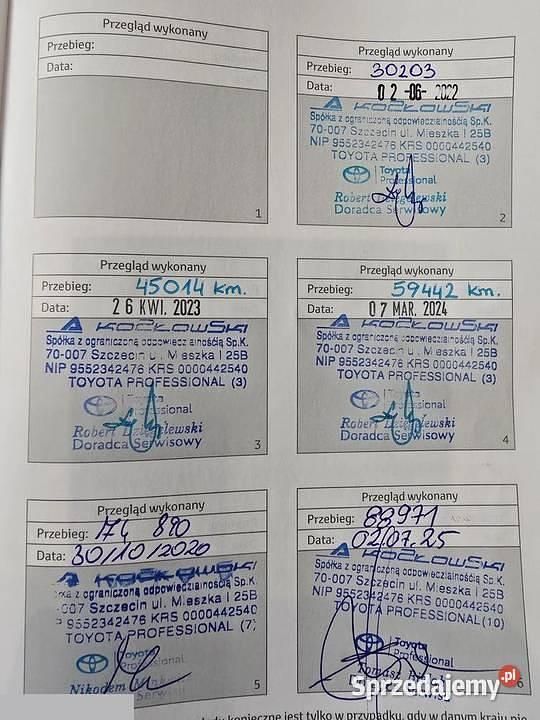 Przegląd wykonany
Przebieg:
Data:
1
Przegląd wykonany
Przebieg: 30203
Data: 02 -06- 2022
KOZŁOWSKI
Spółka z ograniczoną odpowiedzialnością Sp.K.
70-007 Szczecin ul. Mieszka I 25B
NIP 9552342476 KRS 0000442540
TOYOTA PROFESSIONAL (3)
Toyota
Professional
Robert
Doradca Serwisowy
2
Przegląd wykonany
Przebieg: 45014 km.
Data: 26 KWI. 2023
KOZŁOWSKI
Spółka z ograniczoną odpowiedzialnością Sp.K.
70-007 Szczecin ul. Mieszka I 25B
NIP 9552342476 KRS 0000442540
TOYOTA PROFESSIONAL (3)
Robert
Doradca Serwisowy
3
Przegląd wykonany
Przebieg: 59442 km.
Data: 07 MAR. 2024
KOZŁOWSKI
Spółka z ograniczoną odpowiedzialnością Sp.K.
70-007 Szczecin ul. Mieszka I 25B
NIP 9552342476 KRS 0000442540
TOYOTA PROFESSIONAL (3)
Robert
Doradca Serwisowy
4
Przegląd wykonany
Przebieg: 174 890
Data: 30/10/2020
KOZŁOWSKI
z ograniczoną odpowiedzialnością Sp.K.
-007 Szczecin ul. Mieszka I 25B
9552342476 KRS 0000442540
TOYOTA PROFESSIONAL (7)
Toyota
Professional
Nikodem
5
Przegląd wykonany
Przebieg: 88971
Data: 02/07.25
KOZŁOWSKI
Spółka z ograniczoną odpowiedzialnością Sp.K.
70-007 Szczecin ul. Mieszka I 25B
NIP 9552342476 KRS 0000442540
TOYOTA PROFESSIONAL (10)
Toyota
Professional
Tomasz
6
konieczne jest tylko w przypadku gdy w danym kraju nie
Sprzedajemy.pl